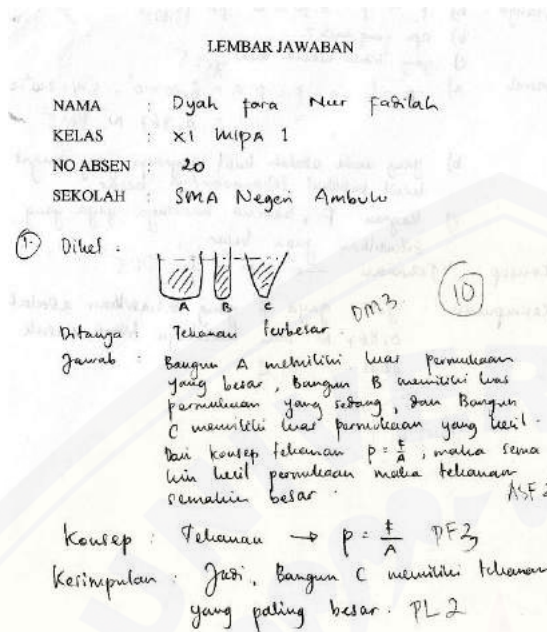 LEMBAR JAWABAN
NAMA : Dyah fara Nur fadilah
KELAS : XI MIPA 1
NO ABSEN : 20
SEKOLAH : SMA Negeri Ambulu
1. Diket :
A B C
DM3 10
Ditanya : Tekanan terbesar
Jawab : Bangun A memiliki luas permukaan
yang besar, Bangun B memiliki luas
permukaan yang sedang, dan Bangun
C memiliki luas permukaan yang kecil.
Dari konsep tekanan p = F/A, maka sema
kin kecil permukaan maka tekanan
semakin besar.
ASF 2
Konsep : Tekanan → p = F/A PF3
Kesimpulan : Jadi, Bangun C memiliki tekanan
yang paling besar. PL 2